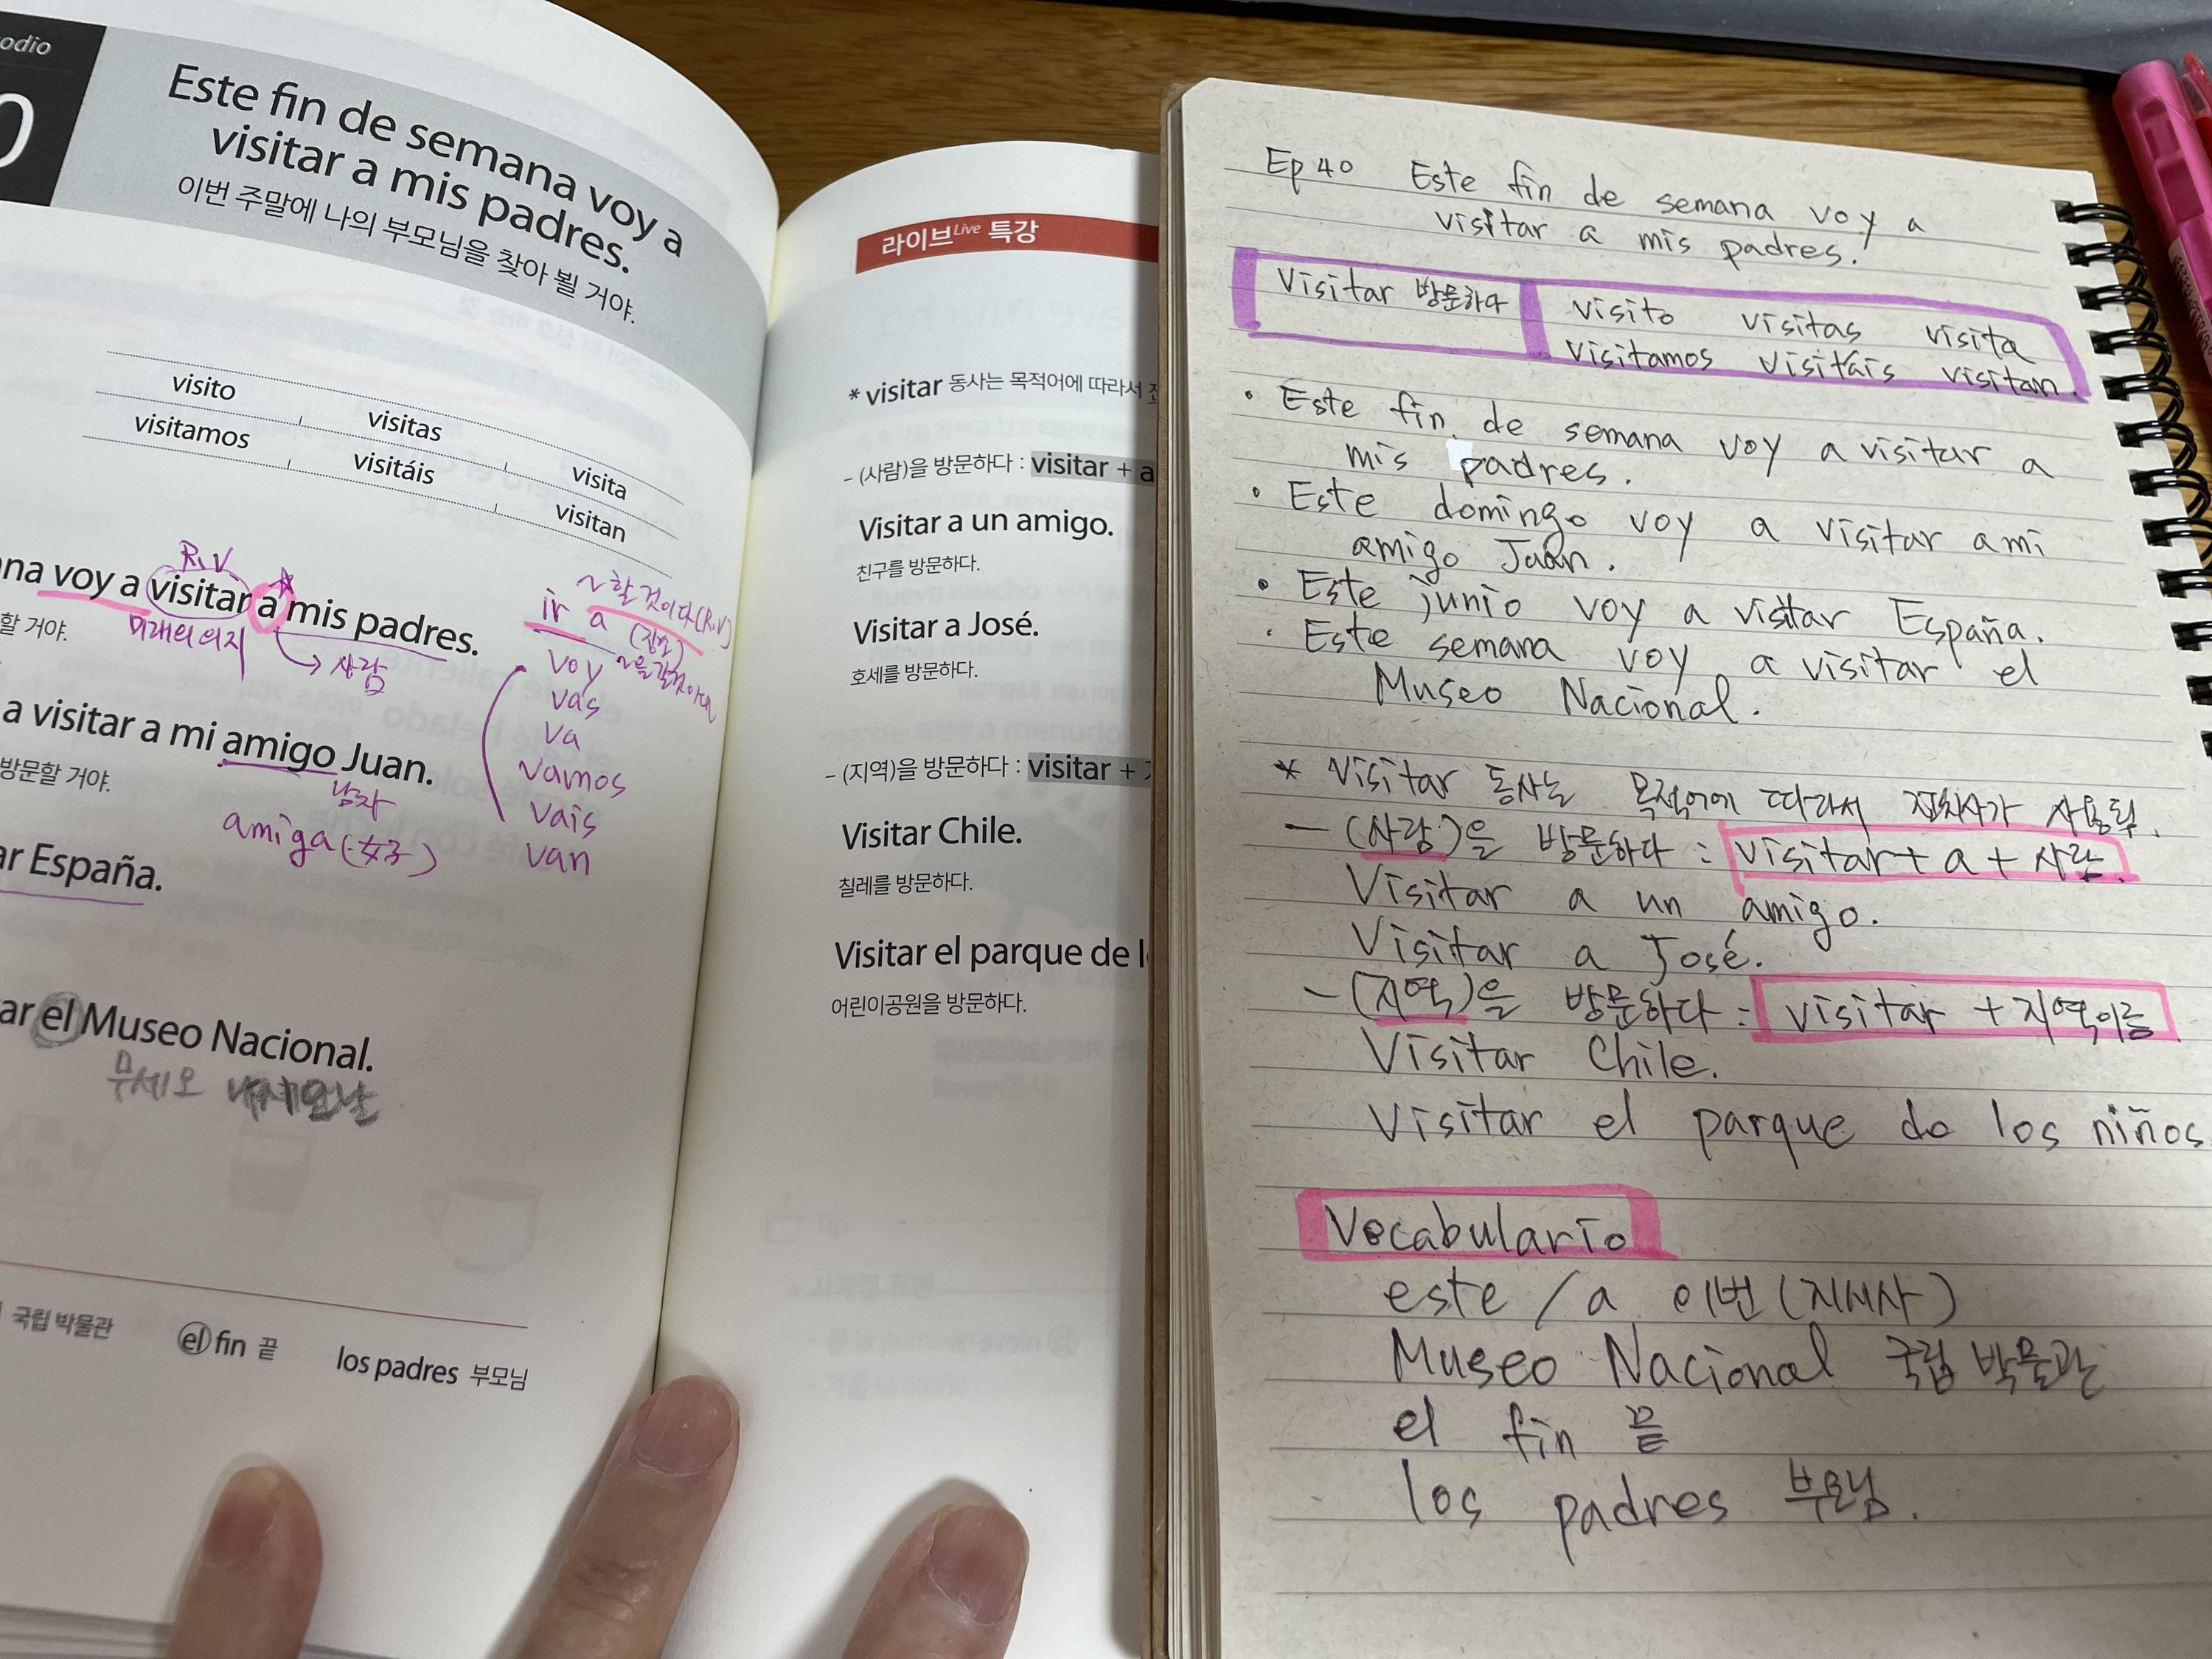 odio
0
Este fin de semana voy a
visitar a mis padres.
이번 주말에 나의 부모님을 찾아 뵐 거야.
visito visitas visita
visitamos visitáis visitan
R.V
na voy a visitar a mis padres.
할 거야.
미래의 의지
사람
~할 것이다(R.V)
ir a (장소)
voy
vas
va
vamos
vais
van
a visitar a mi amigo Juan.
방문할 거야.
남자
amiga (女子)
ar España.
ar el Museo Nacional.
무세오
국립 박물관 el fin 끝 los padres 부모님
라이브Live 특강
* visitar 동사는 목적어에 따라서 전
- (사람)을 방문하다 : visitar + a
Visitar a un amigo.
친구를 방문하다.
Visitar a José.
호세를 방문하다.
- (지역)을 방문하다 : visitar +
Visitar Chile.
칠레를 방문하다.
Visitar el parque de l
어린이공원을 방문하다.
Ep 40 Este fin de semana voy a
visitar a mis padres.
Visitar 방문하다 visito visitas visita
visitamos visitáis visitan.
• Este fin de semana voy a visitar a
mis padres.
• Este domingo voy a visitar a mi
amigo Juan.
• Este junio voy a visitar España.
• Este semana voy a visitar el
Museo Nacional.
* Visitar 동사는 목적어에 따라서 전치사가 사용됨.
- (사람)을 방문하다 : visitar + a + 사람.
Visitar a un amigo.
Visitar a José.
- (지역)을 방문하다 : visitar + 지역이름
Visitar Chile.
Visitar el parque do los niños
Vocabulario
este / a 이번 (지시사)
Museo Nacional 국립 박물관
el fin 끝
los padres 부모님.